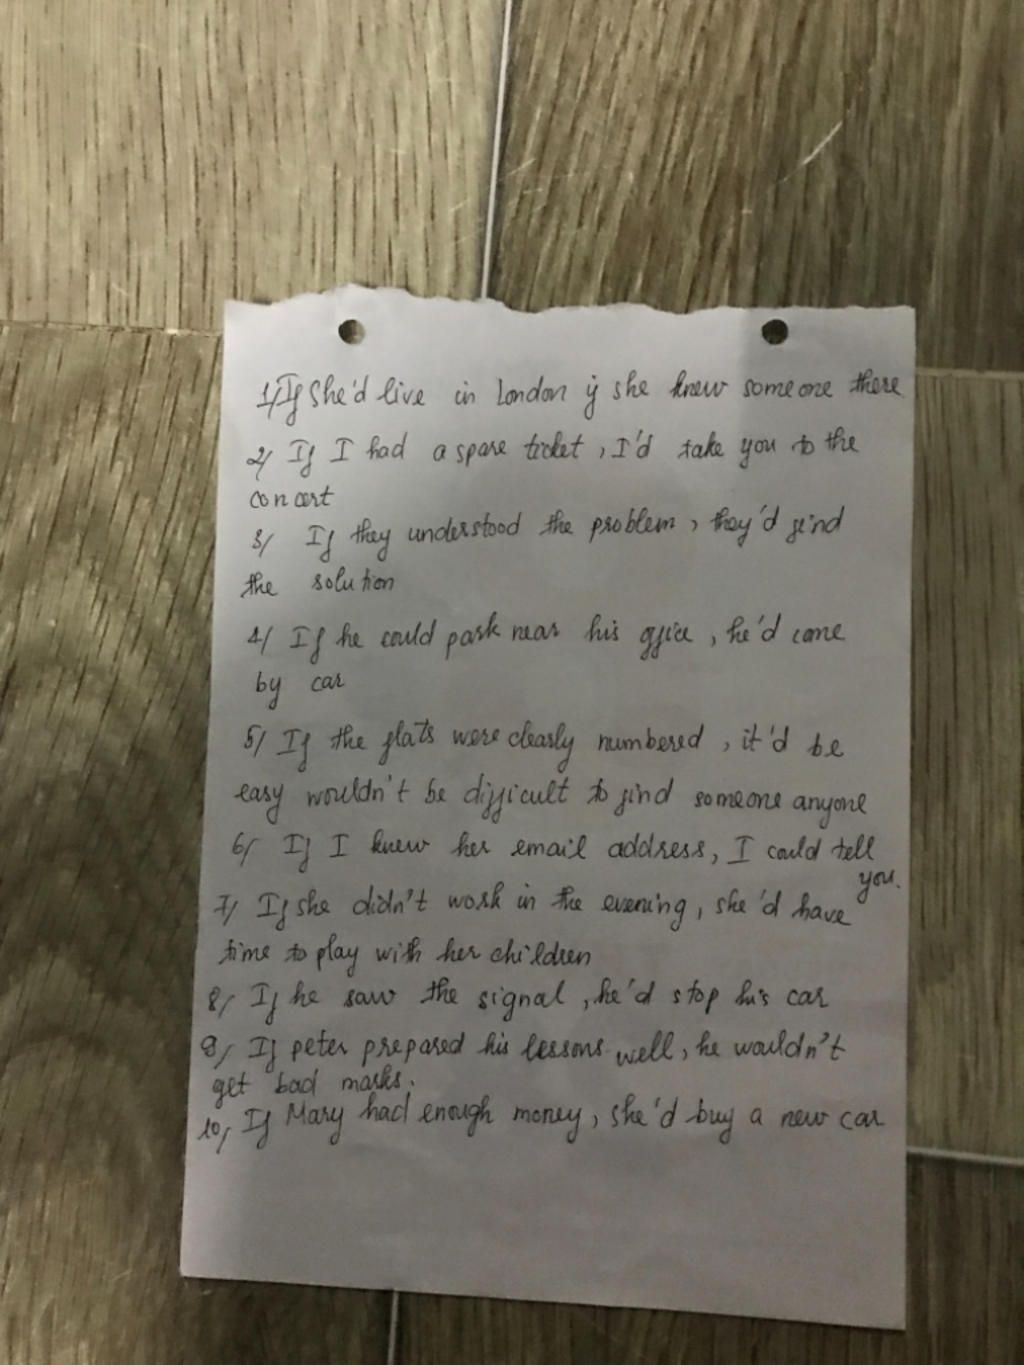 1/ If She'd live in London if she knew someone there
2/ If I had a spare ticket, I'd take you to the
concert
3/ If they understood the problem, they'd find
the solution
4/ If he could park near his office, he'd come
by car
5/ If the flats were clearly numbered, it'd be
easy wouldn't be difficult to find someone anyone
6/ If I knew her email address, I could tell
you.
7/ If she didn't work in the evening, she'd have
time to play with her children
8/ If he saw the signal, he'd stop his car
9/ If peter prepared his lessons well, he wouldn't
get bad marks.
10/ If Mary had enough money, she'd buy a new car